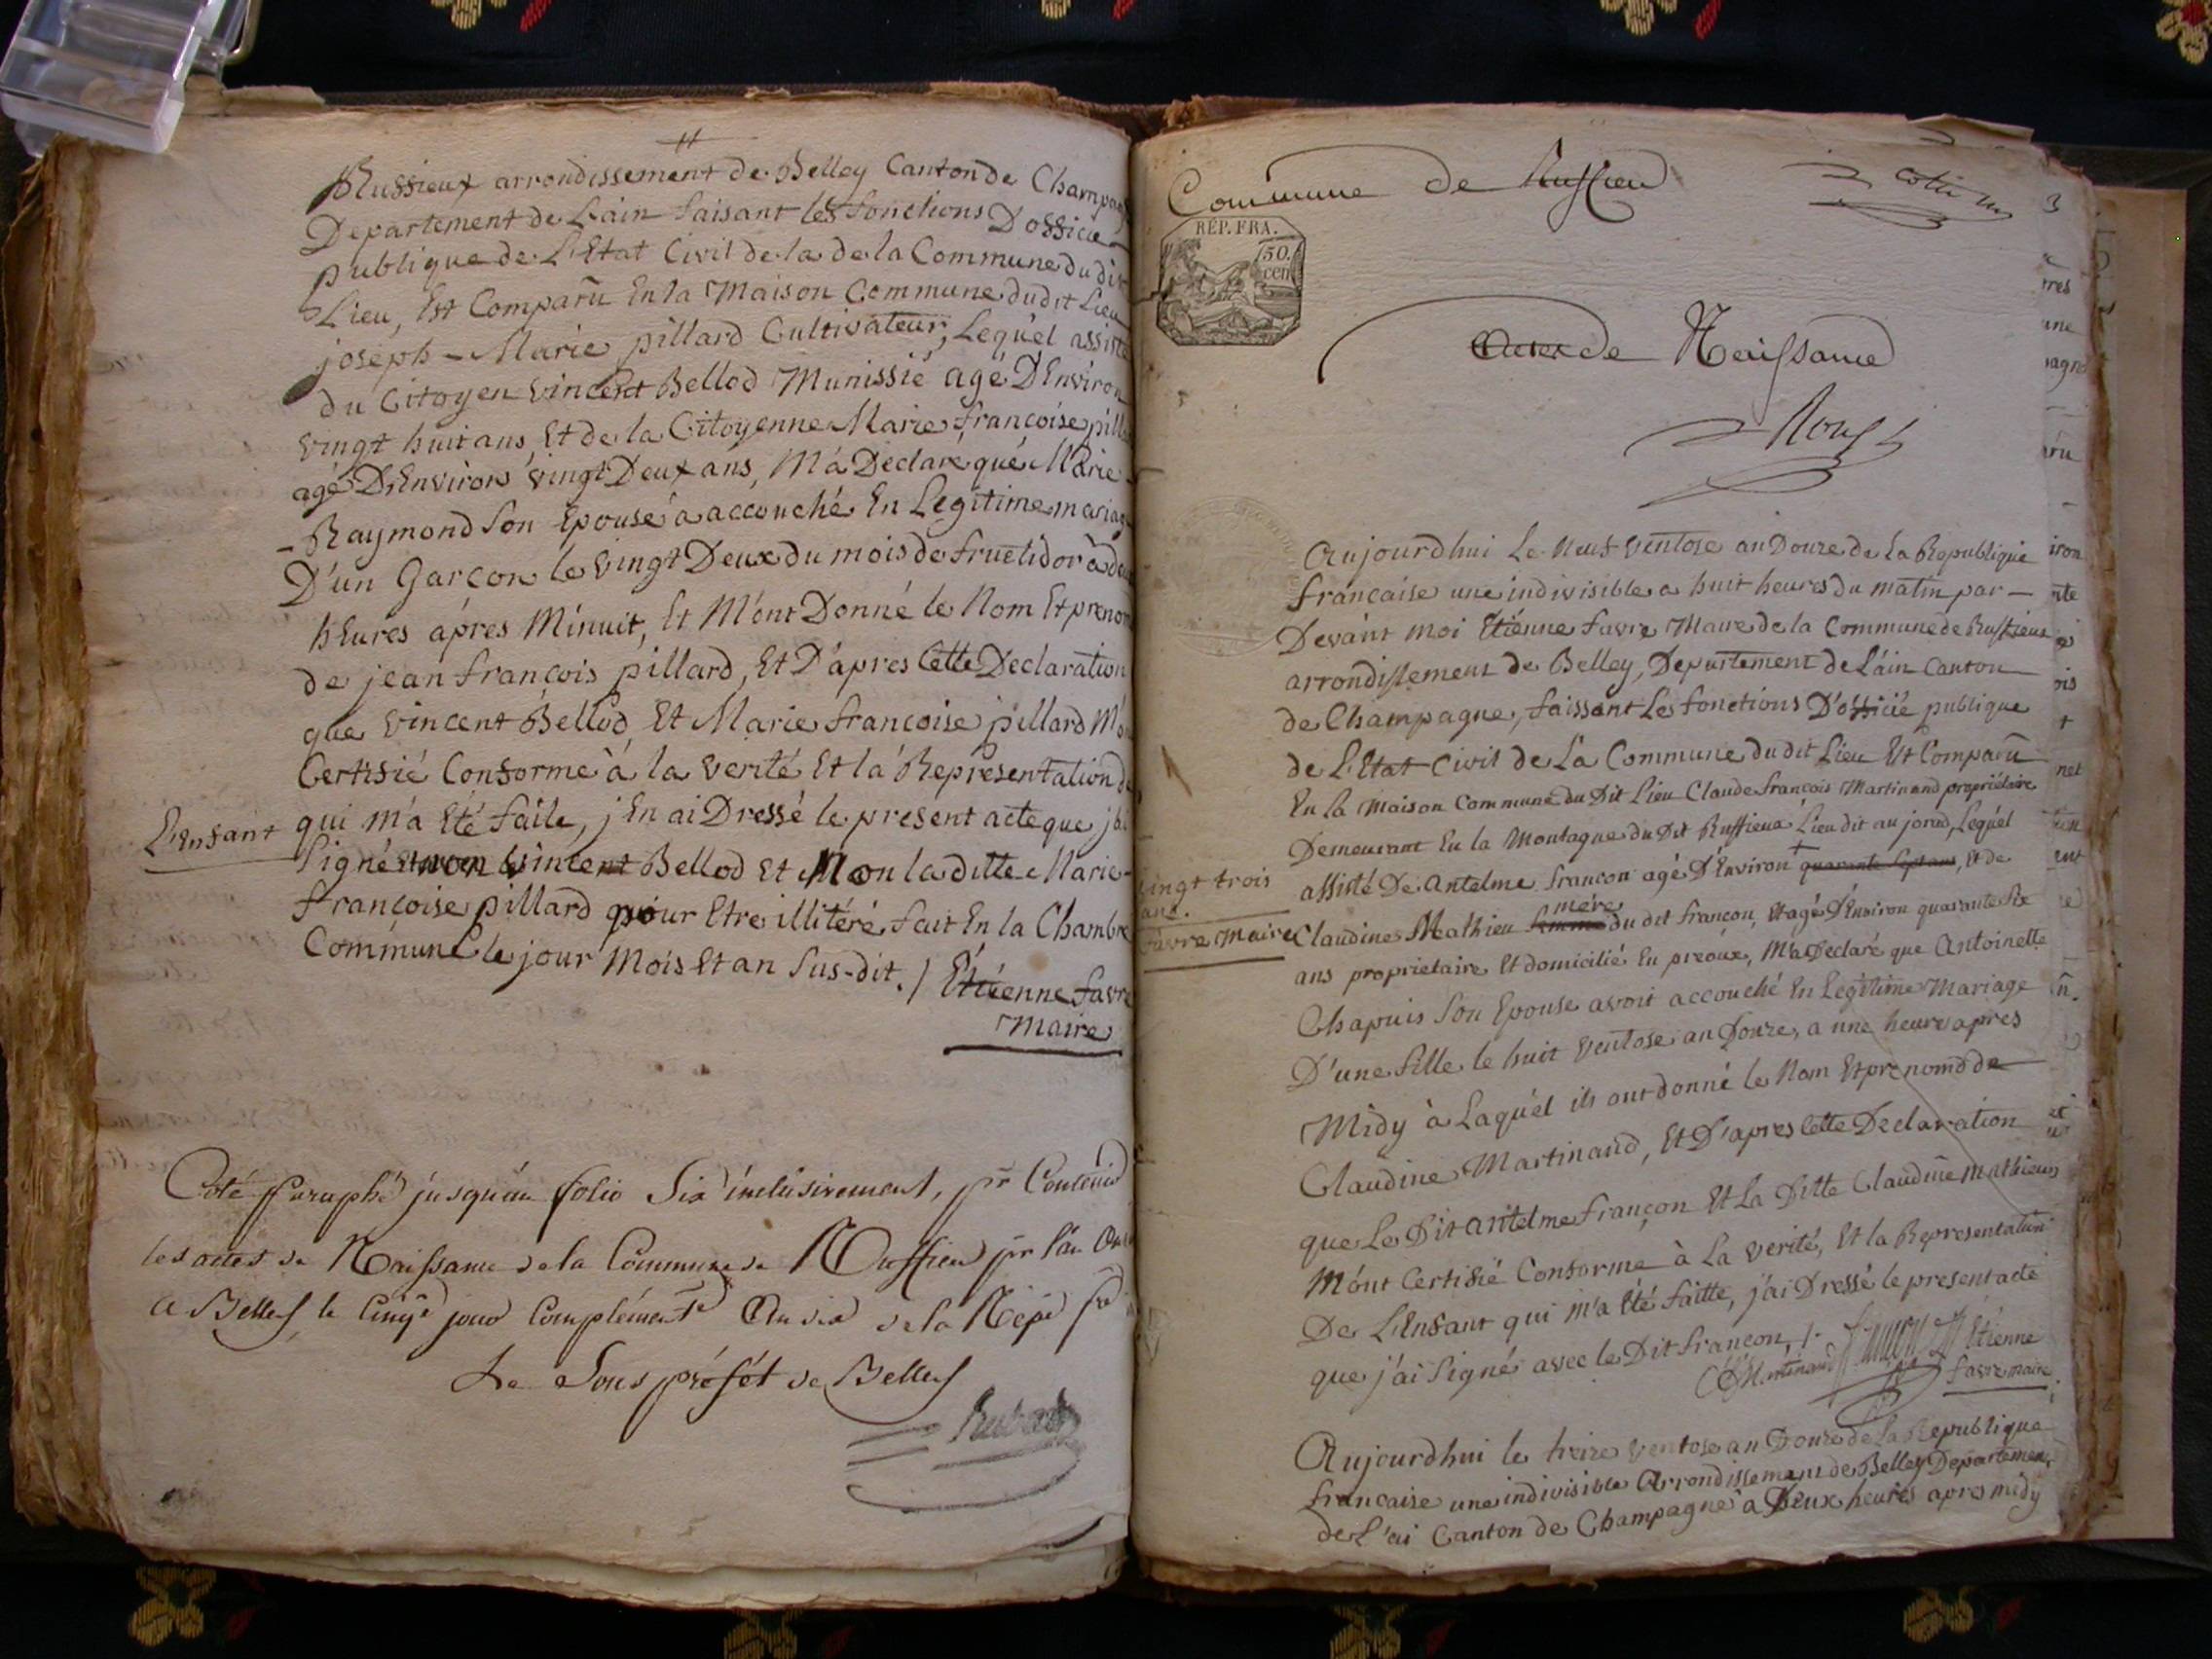 Russieux arrondissement de Belley Canton de Champag
Departement de L'ain faisant les fonctions D'officie
publique de L'Etat Civil de la de la Commune du dit
Lieu, Est Comparû En la Maison Commune dudit Lieu
joseph-Marie pillard Cultivateur, Lequel assisté
du Citoyen vincent Bellod Munissié agé D'Environ
vingt huit ans, Et de la Citoyenne Marie françoise pill
agé D'Environ vingt Deux ans, M'a Declaré que Marie
- Raymond Son Epouse à accouché En Legitime mariag
D'un Garçon le vingt Deux du mois de fructidor à deu
hEures après Minuit, Et M'ont Donné le Nom Et prenom
de jean françois pillard, Et D'apres Cette Declaration
que vincent Bellod Et Marie francoise pillard M'o
Certifié Conforme à la verité Et la Representation de
L'Enfant
qui m'a Eté faite, j'En ai Dressé le present acte que j'ai
Signé Et non vincent Bellod Et Non la ditte Marie-
françoise pillard pour Etre illitéré fait En la Chambre
Commune le jour Mois Et an Sus-dit. / Etiénne favre
Maire
Coté Paraphé jusqu'au folio Six inclusivement, pr Contenir
les actes de Naissance de la Commune de Ruffieu pr l'an
a Belley le Cinqe jour Complémentre An dix de la Répe
Le Sous préfét de Belley
Commune de Ruffieu
RÉP. FRA.
50.
cen
Actes de Naissance
Aujourdhui Le Neuf ventose an Douze de la Republique
francaise une indivisible a huit heures du matin par-
Devant moi Etiénne favre Maire de la Commune de Ruffieux
arrondissement de Belley, Departement de L'ain Canton
de Champagne, faissant Les fonctions D'officié publique
de L'Etat Civil de La Commune du dit Lieu Est Comparû
En la Maison Commune du Dit Lieu Claude francois Martinand propriétaire
Demeurant En la Montagne du Dit Ruffieux Lieu dit au jorad, Lequél
assisté De antelme francon agé D'Environ quarante Sept ans, Et de
vingt trois
ans.
favre Maire
mére
Claudine Mathieu femme du dit francon, Et agé D'Environ quarante Six
ans proprietaire Et domicilié En préoux, M'a Declaré que Antoinette
Chapuis Son Epouse avoit accouché En Legitime Mariage
D'une fille le huit ventose an Douze, a une heure apres
Midy à Laquél ils ont donné le Nom Et prenom de
Claudine Martinand, Et D'apres Cette Declaration
que Le Dit antelme françon Et La Ditte Claudine Mathieux
M'ont Certifié Conforme à La verité, Et la Representation
De L'Enfant qui m'a Eté faitte, j'ai Dressé le present acte
que j'ai Signé avec le Dit francon, /.
Etienne
favre maire
Aujourdhui le treize ventose an Douze de la Republique
francaise une indivisible Arrondissement de Belley Departement
de L'ai Canton de Champagne a Deux heures apres midy